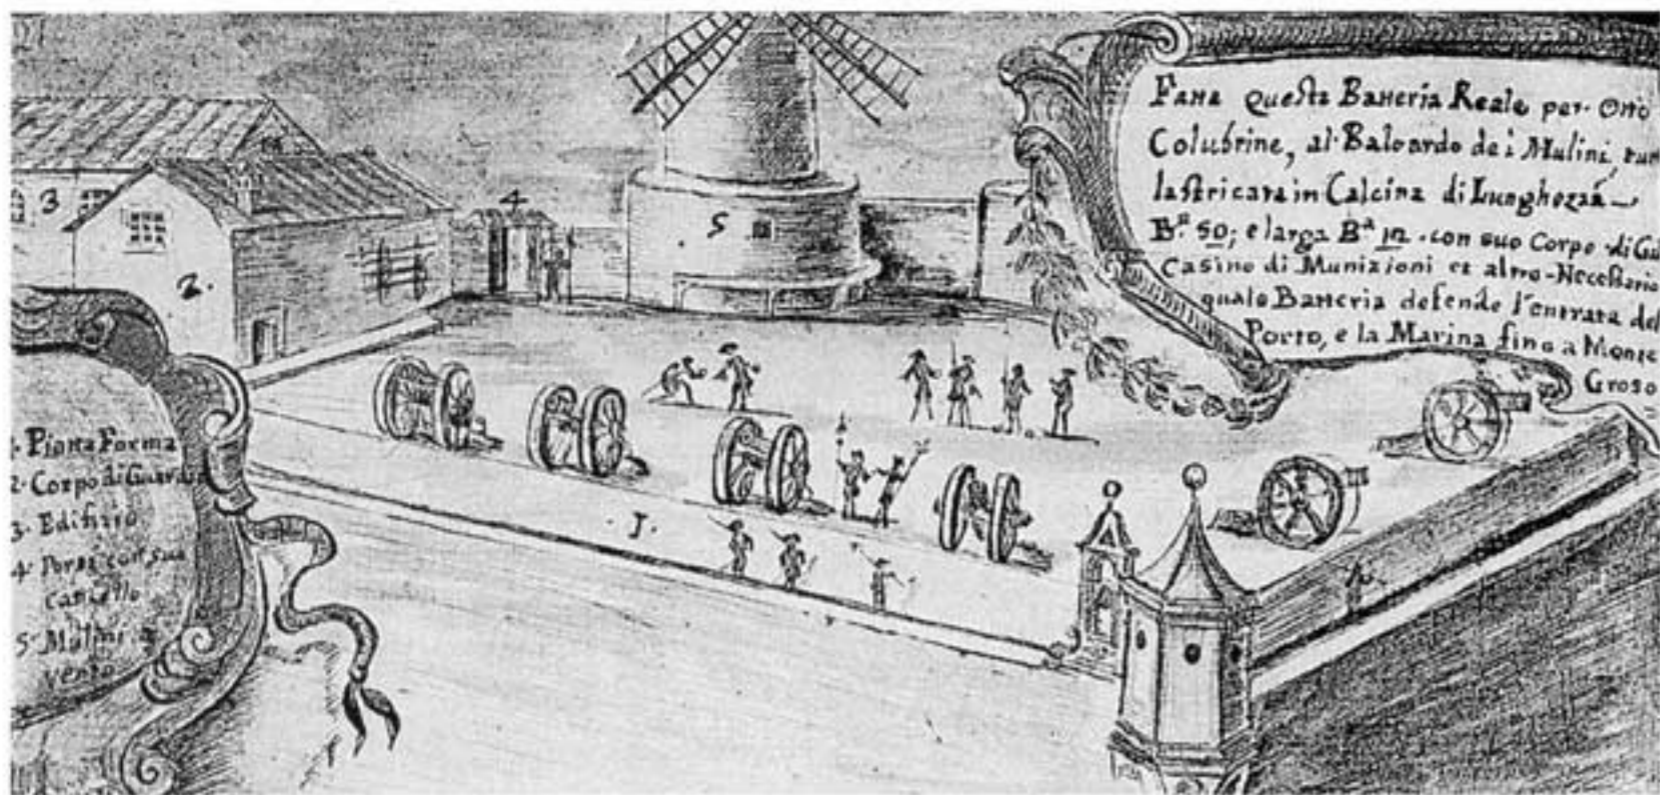 Fatta questa Batteria Reale per Otto
Colubrine, al Baloardo dei Mulini,
lastricata in Calcina di Lunghezza
B.ª 50; e larga B.ª 12. con suo Corpo di
Casino di Munizioni et altro Necessario
quale Batteria defende l'entrata del
Porto, e la Marina fino a Monte
Groso
1. Piatta Forma
2. Corpo di Guardia
3. Edifizio
4. Porta con sua
cancello
5. Mulini a
vento
3
4
5
2.
1.